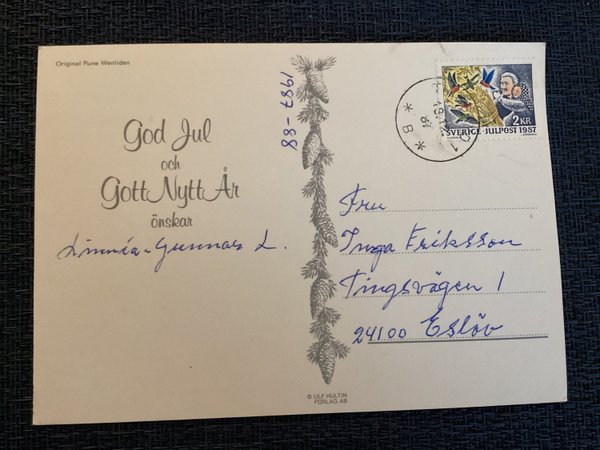 Original Rune Wenliden
God Jul
och
Gott Nytt År
önskar
Linnéa - Gunnar L.
1987-88
2 KR
SVERIGE · JULPOST 1987
* B *
Fru
Inga Eriksson
Tingsvägen 1
24100 Eslöv
© ULF HULTIN
FÖRLAG AB